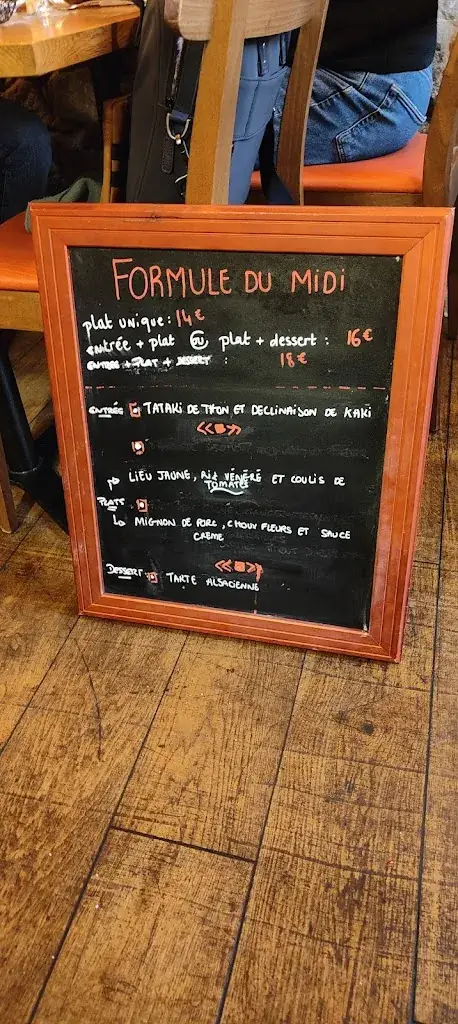 FORMULE DU MIDI
plat unique : 14€
entrée + plat ou plat + dessert : 16€
ENTREE + PLAT + DESSERT : 18€
ENTRÉE TATAKI DE THON ET DECLINAISON DE KAKI
LIEU JAUNE, Riz VÉNÉRÉ ET COULIS DE
TOMATES
PLATS
MIGNON DE PORC, CHOUX FLEURS ET SAUCE
CREME
DESSERT TARTE ALSACIENNE